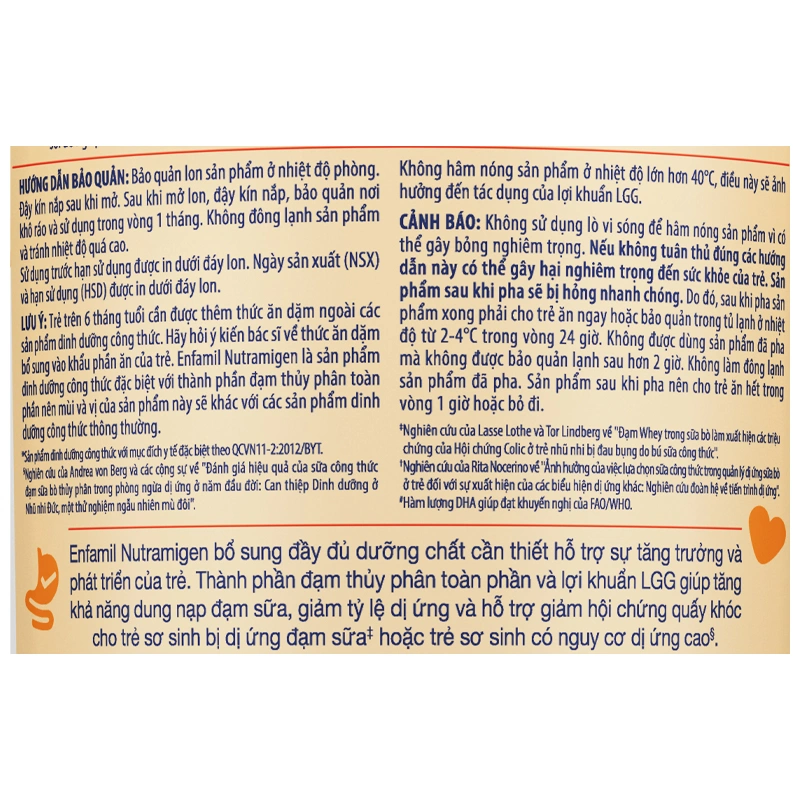 HƯỚNG DẪN BẢO QUẢN: Bảo quản lon sản phẩm ở nhiệt độ phòng.
Đậy kín nắp sau khi mở. Sau khi mở lon, đậy kín nắp, bảo quản nơi
khô ráo và sử dụng trong vòng 1 tháng. Không đông lạnh sản phẩm
và tránh nhiệt độ quá cao.
Sử dụng trước hạn sử dụng được in dưới đáy lon. Ngày sản xuất (NSX)
và hạn sử dụng (HSD) được in dưới đáy lon.
LƯU Ý: Trẻ trên 6 tháng tuổi cần được thêm thức ăn dặm ngoài các
sản phẩm dinh dưỡng công thức. Hãy hỏi ý kiến bác sĩ về thức ăn dặm
bổ sung vào khẩu phần ăn của trẻ. Enfamil Nutramigen là sản phẩm
dinh dưỡng công thức đặc biệt với thành phần đạm thủy phân toàn
phần nên mùi và vị của sản phẩm này sẽ khác với các sản phẩm dinh
dưỡng công thức thông thường.
*Sản phẩm dinh dưỡng công thức với mục đích y tế đặc biệt theo QCVN11-2:2012/BYT.
§Nghiên cứu của Andrea von Berg và các cộng sự về "Đánh giá hiệu quả của sữa công thức
đạm sữa bò thủy phân trong phòng ngừa dị ứng ở năm đầu đời: Can thiệp Dinh dưỡng ở
Nhũ nhi Đức, một thử nghiệm ngẫu nhiên mù đôi".
Không hâm nóng sản phẩm ở nhiệt độ lớn hơn 40°C, điều này sẽ ảnh
hưởng đến tác dụng của lợi khuẩn LGG.
CẢNH BÁO: Không sử dụng lò vi sóng để hâm nóng sản phẩm vì có
thể gây bỏng nghiêm trọng. Nếu không tuân thủ đúng các hướng
dẫn này có thể gây hại nghiêm trọng đến sức khỏe của trẻ. Sản
phẩm sau khi pha sẽ bị hỏng nhanh chóng. Do đó, sau khi pha sản
phẩm xong phải cho trẻ ăn ngay hoặc bảo quản trong tủ lạnh ở nhiệt
độ từ 2-4°C trong vòng 24 giờ. Không được dùng sản phẩm đã pha
mà không được bảo quản lạnh sau hơn 2 giờ. Không làm đông lạnh
sản phẩm đã pha. Sản phẩm sau khi pha nên cho trẻ ăn hết trong
vòng 1 giờ hoặc bỏ đi.
‡Nghiên cứu của Lasse Lothe và Tor Lindberg về "Đạm Whey trong sữa bò làm xuất hiện các triệu
chứng của Hội chứng Colic ở trẻ nhũ nhi bị đau bụng do bú sữa công thức".
†Nghiên cứu của Rita Nocerino về "Ảnh hưởng của việc lựa chọn sữa công thức trong quản lý dị ứng sữa bò
ở trẻ đối với sự xuất hiện của các biểu hiện dị ứng khác: Nghiên cứu đoàn hệ về tiến trình dị ứng".
#Hàm lượng DHA giúp đạt khuyến nghị của FAO/WHO.
Enfamil Nutramigen bổ sung đầy đủ dưỡng chất cần thiết hỗ trợ sự tăng trưởng và
phát triển của trẻ. Thành phần đạm thủy phân toàn phần và lợi khuẩn LGG giúp tăng
khả năng dung nạp đạm sữa, giảm tỷ lệ dị ứng và hỗ trợ giảm hội chứng quấy khóc
cho trẻ sơ sinh bị dị ứng đạm sữa‡ hoặc trẻ sơ sinh có nguy cơ dị ứng cao§.